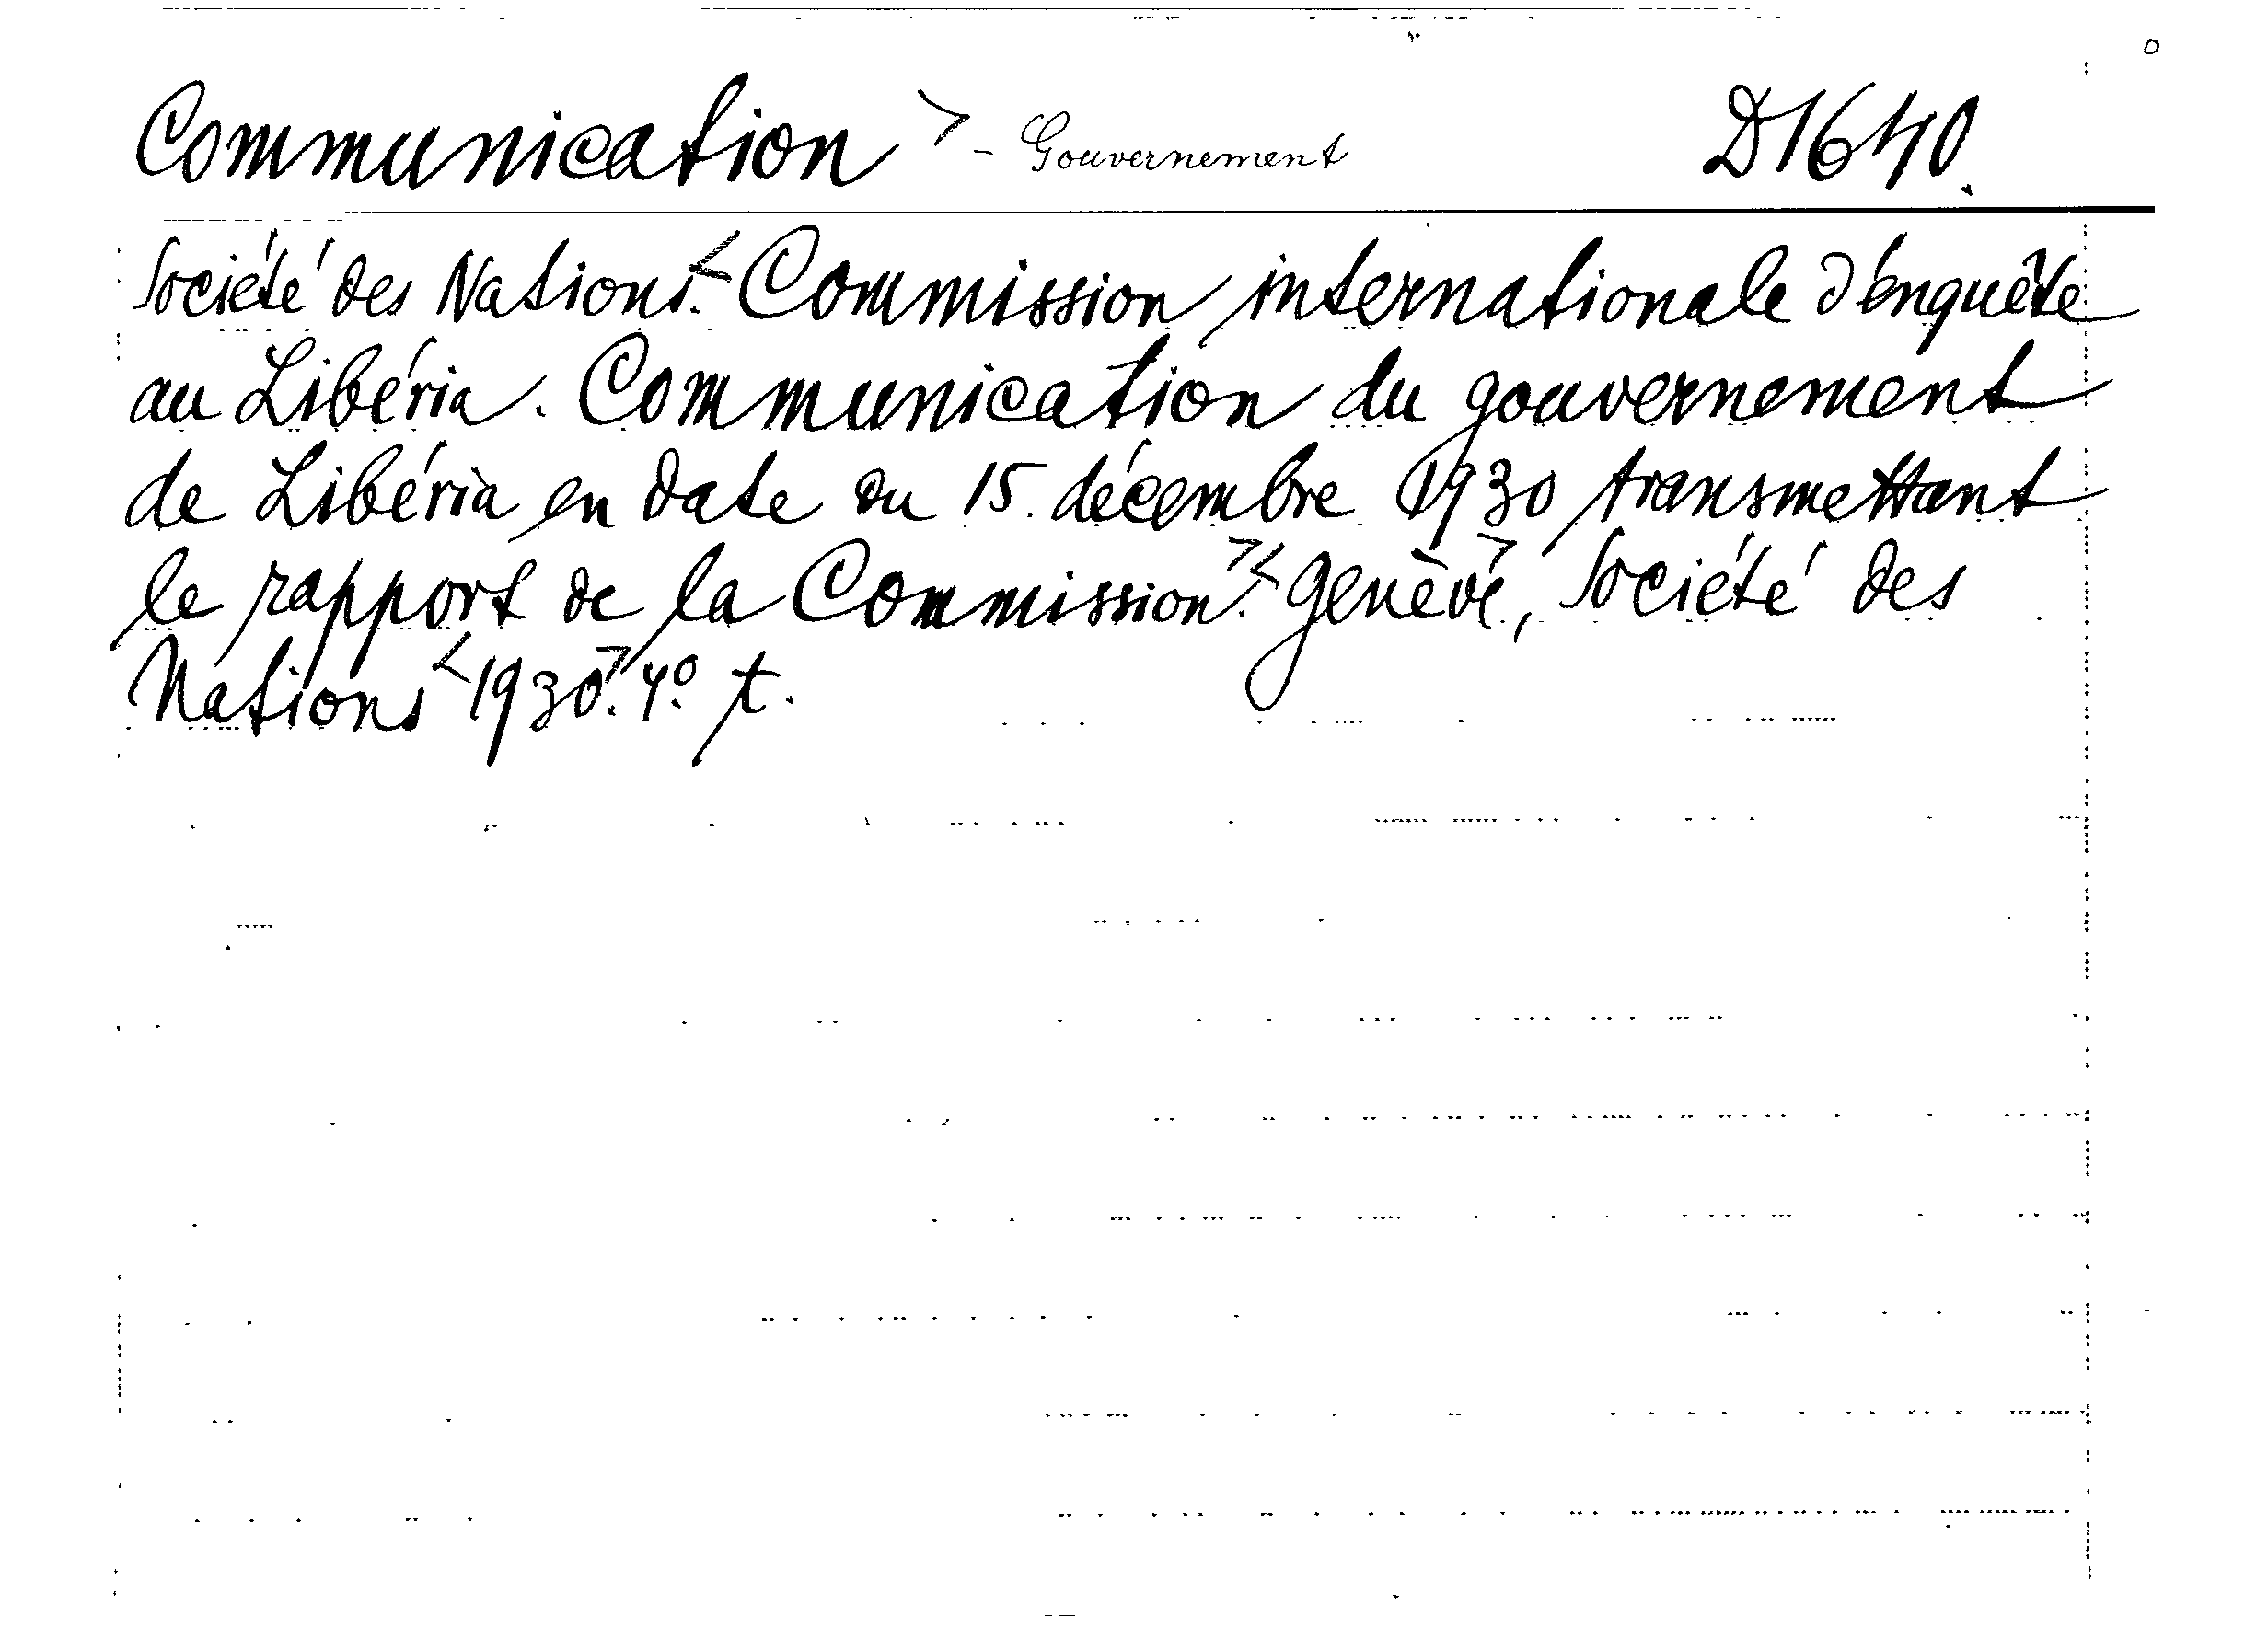 Communication > - Gouvernement D1640.
Société des Nations. < Commission internationale d'enquête
au Libéria. Communication du gouvernement
de Libéria en date du 15 décembre 1930 transmettant
le rapport de la Commission. > < Genève >, Société des
Nations < 1930 >. 4º. t.